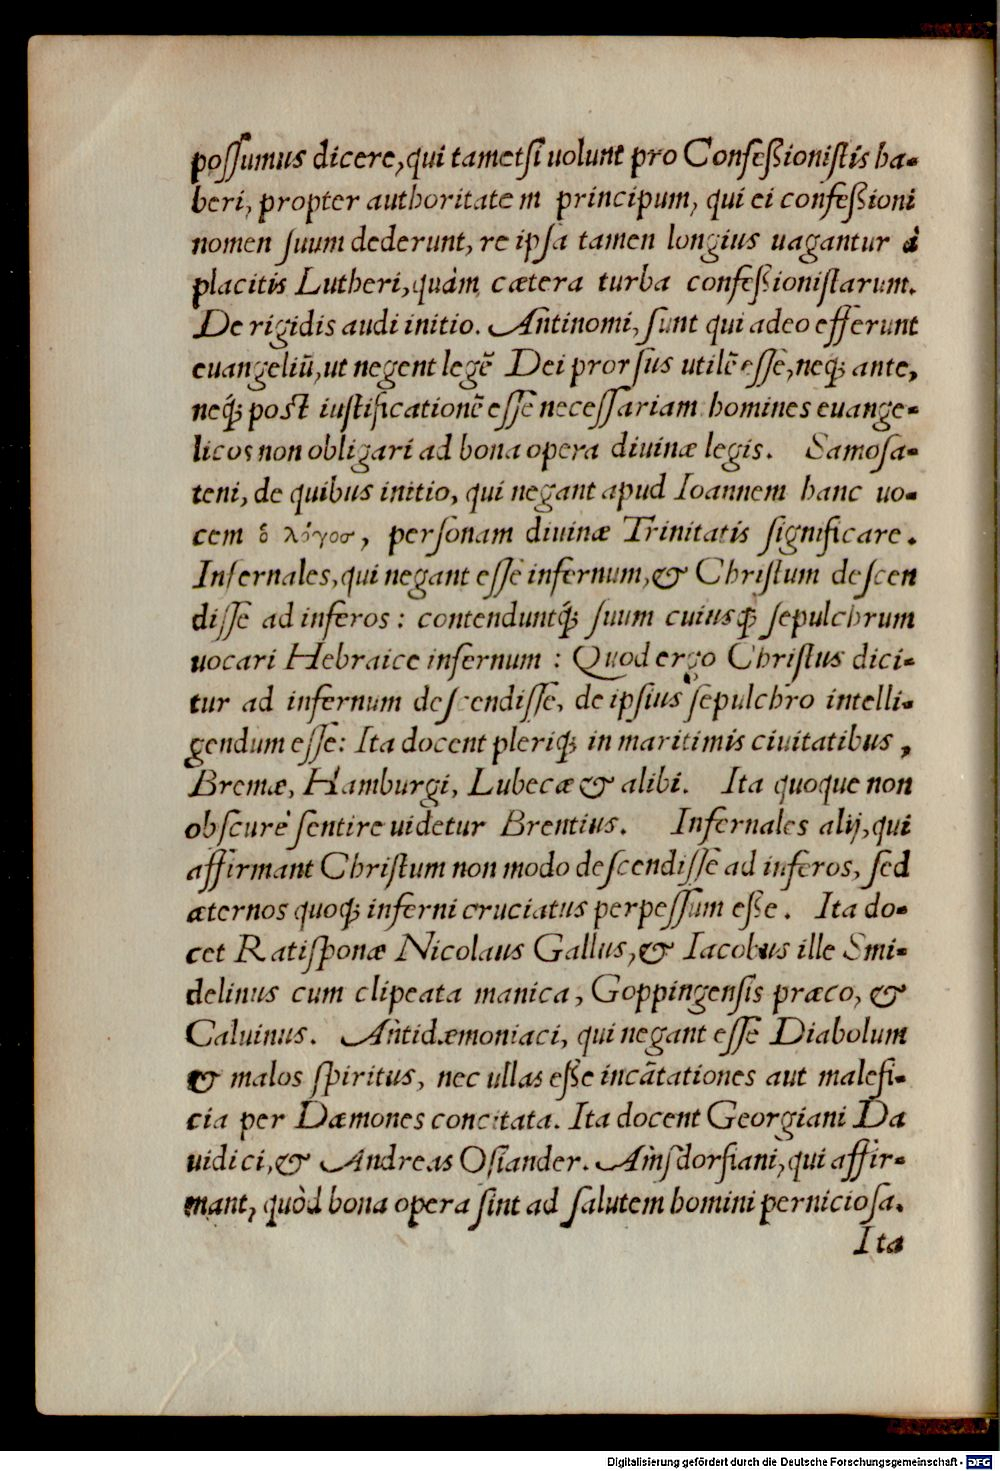 possumus dicere, qui tametsi uolunt pro Confeßionistis ha-
beri, propter authoritatem principum, qui ei confeßioni
nomen suum dederunt, re ipsa tamen longius uagantur à
placitis Lutheri, quàm cætera turba confeßionistarum.
De rigidis audi initio. Antinomi, sunt qui adeo efferunt
euangeliũ, ut negent legẽ Dei prorsus utilẽ esse, neq; ante,
neq́; post iustificationẽ esse necessariam homines euange-
licos non obligari ad bona opera diuinæ legis. Samosa-
teni, de quibus initio, qui negant apud Ioannem hanc uo-
cem ὁ λόγοσ, personam diuinæ Trinitatis significare.
Infernales, qui negant esse infernum, & Christum descen
disse ad inferos: contenduntq́; suum cuiusq; sepulchrum
uocari Hebraice infernum: Quod ergo Christus dici-
tur ad infernum descendisse, de ipsius sepulchro intelli-
gendum esse: Ita docent pleriq; in maritimis ciuitatibus,
Bremæ, Hamburgi, Lubecæ & alibi. Ita quoque non
obscurè sentire uidetur Brentius. Infernales alij, qui
affirmant Christum non modo descendisse ad inferos, sed
æternos quoq; inferni cruciatus perpessum eße. Ita do-
cet Ratisponæ Nicolaus Gallus, & Iacobus ille Smi-
delinus cum clipeata manica, Goppingensis præco, &
Caluinus. Antidæmoniaci, qui negant esse Diabolum
& malos spiritus, nec ullas eße incãtationes aut malefi-
cia per Dæmones concitata. Ita docent Georgiani Da
uidici, & Andreas Osiander. Amsdorfiani, qui affir-
mant, quòd bona opera sint ad salutem homini perniciosa.
Ita
Digitalisierung gefördert durch die Deutsche Forschungsgemeinschaft - DFG